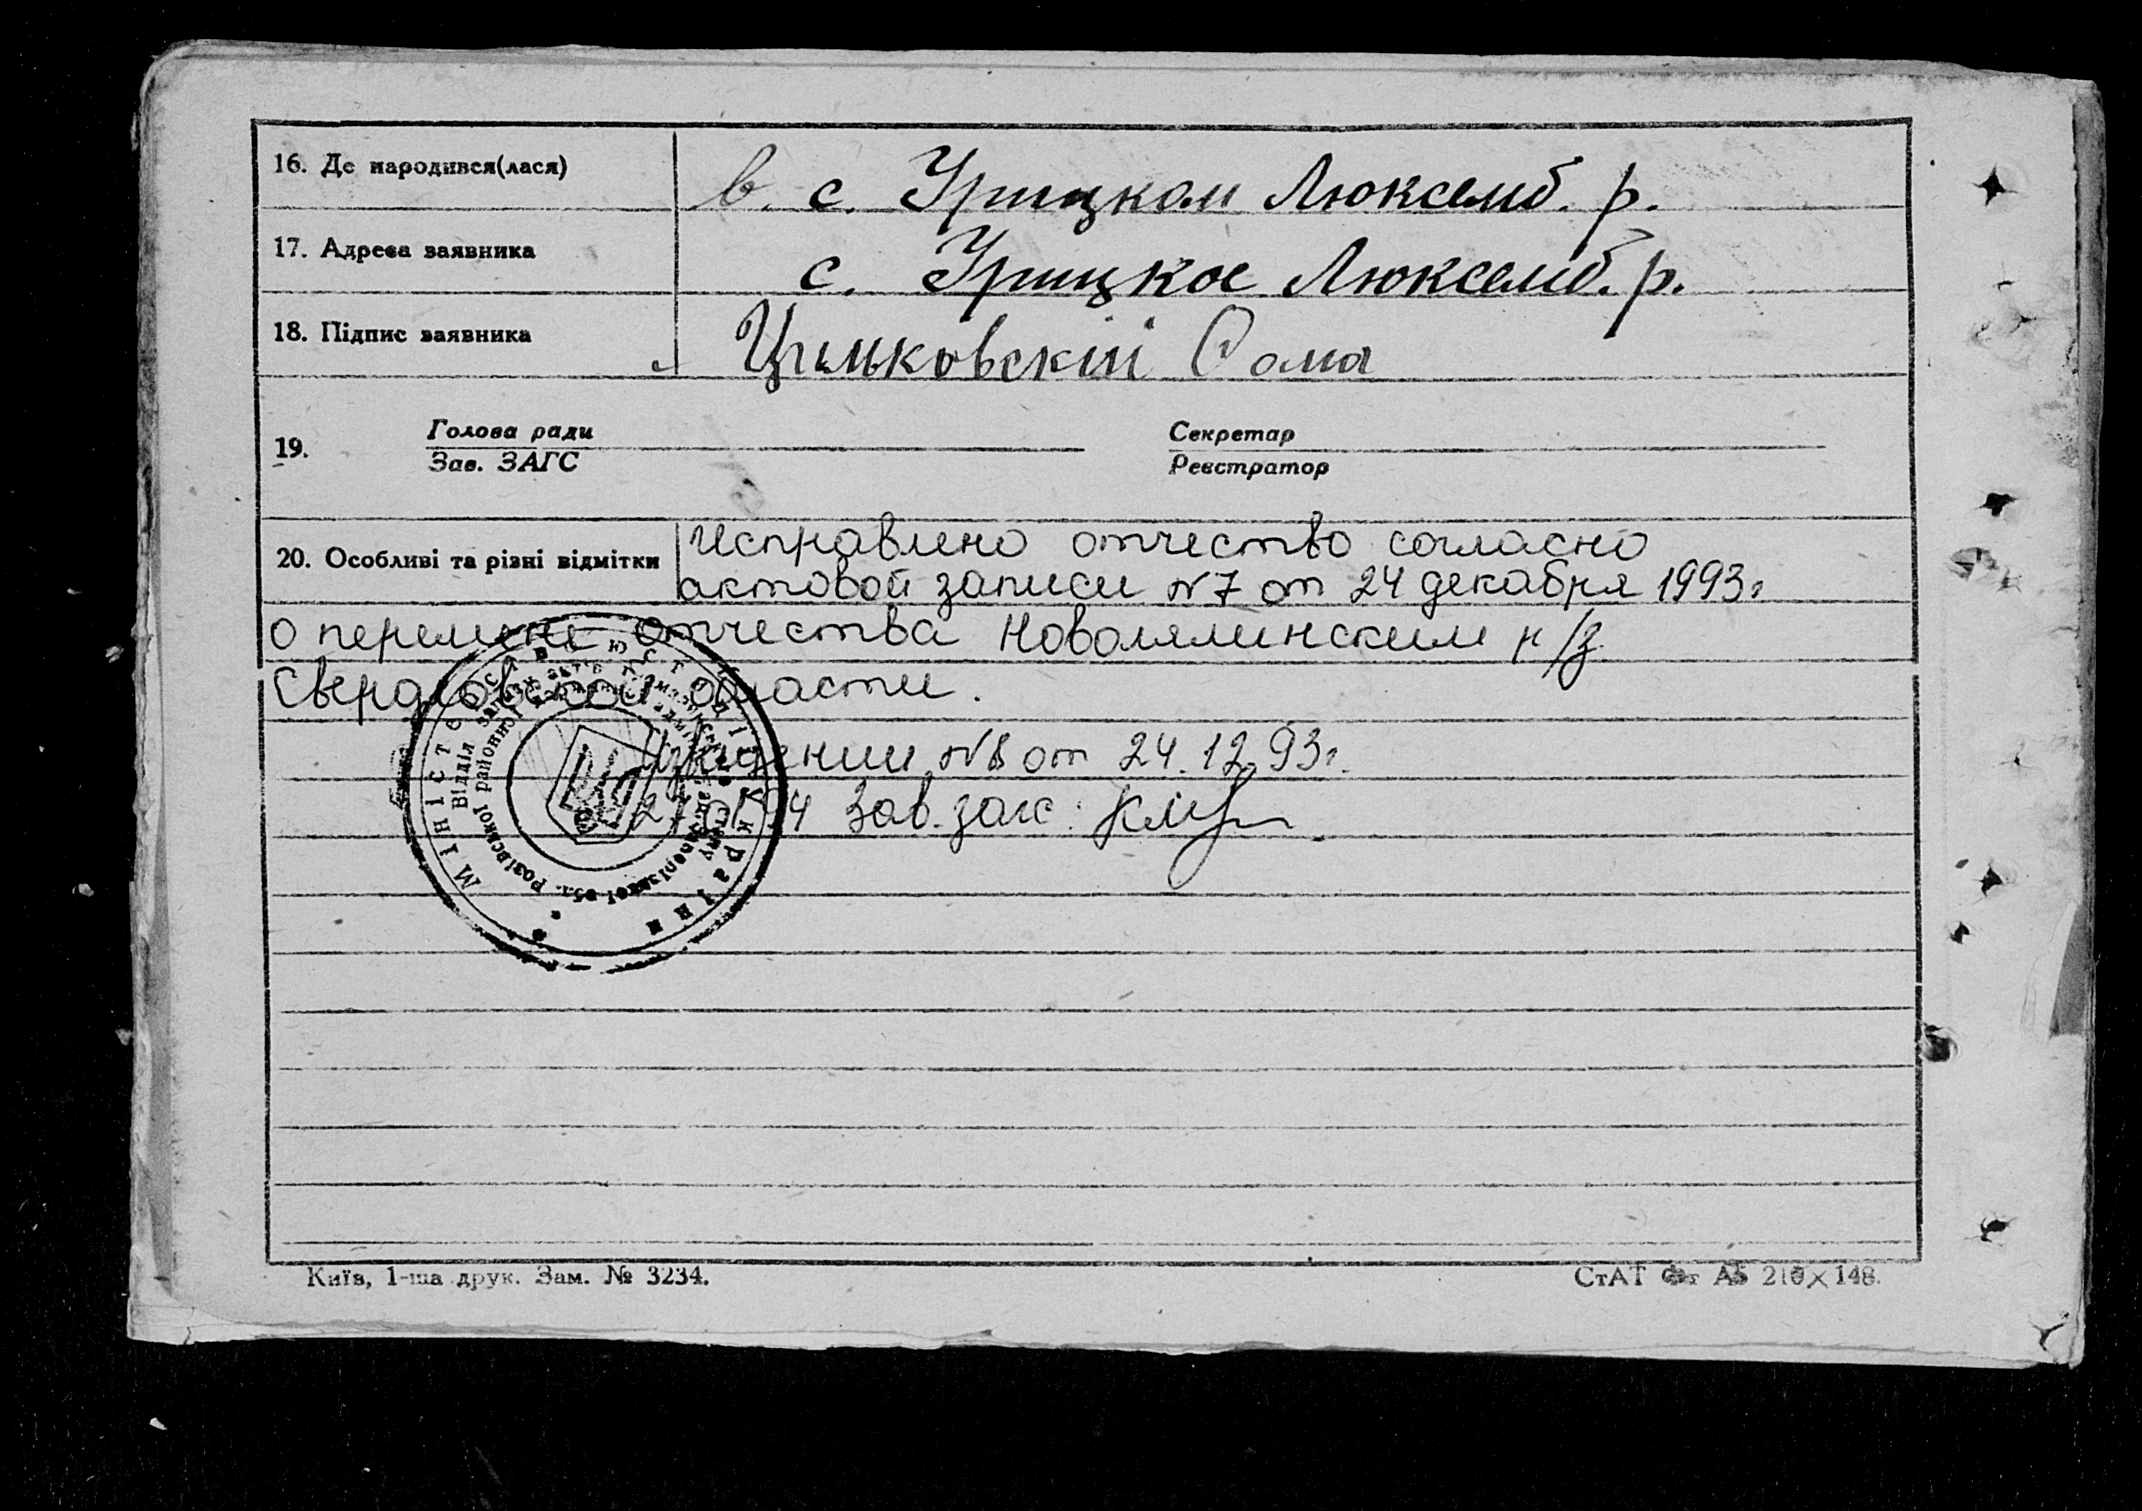 16. Де народився(лася)
в. с. Урицком Люксемб. р.
17. Адреса заявника
с. Урицкое Люксемб. р.
18. Підпис заявника
Цимковскій Сома
19.
Голова ради
Зав. ЗАГС
Секретар
Реєстратор
20. Особливі та різні відмітки
Исправлено отчество согласно
актовой записи №7 от 24 декабря 1993г
о перемене отчества Новолялинским
Свердловской области.
Извещении №8 от 24.12.93г.
Зав. загс:
Міністерство юстиції України
Відділ
районної
Розівської
Запорізької обл.
Київ, 1-ша друк. Зам. № 3234.
СтАТ Фт А5 210×148.